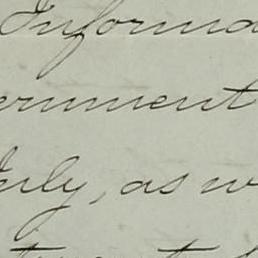 Informa
ernment
July, as w